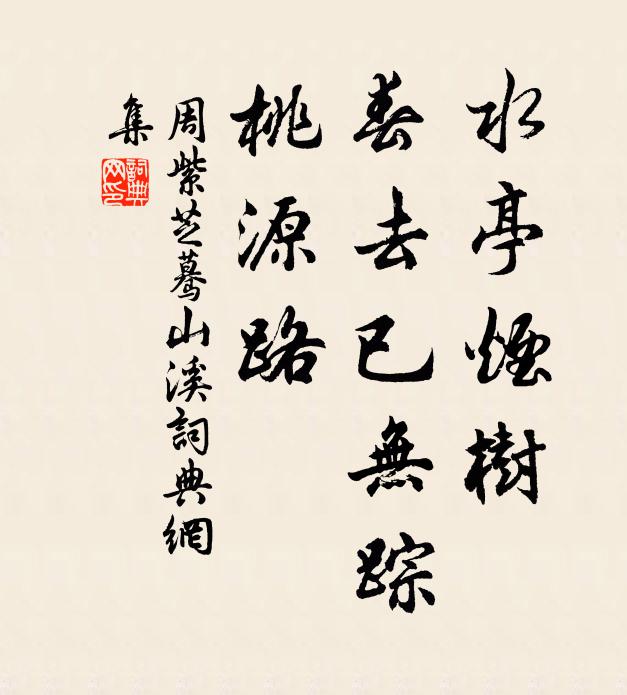 水亭煙樹
春去已無踪
桃源路
周紫芝驀山溪詞典網
集
詞典網印